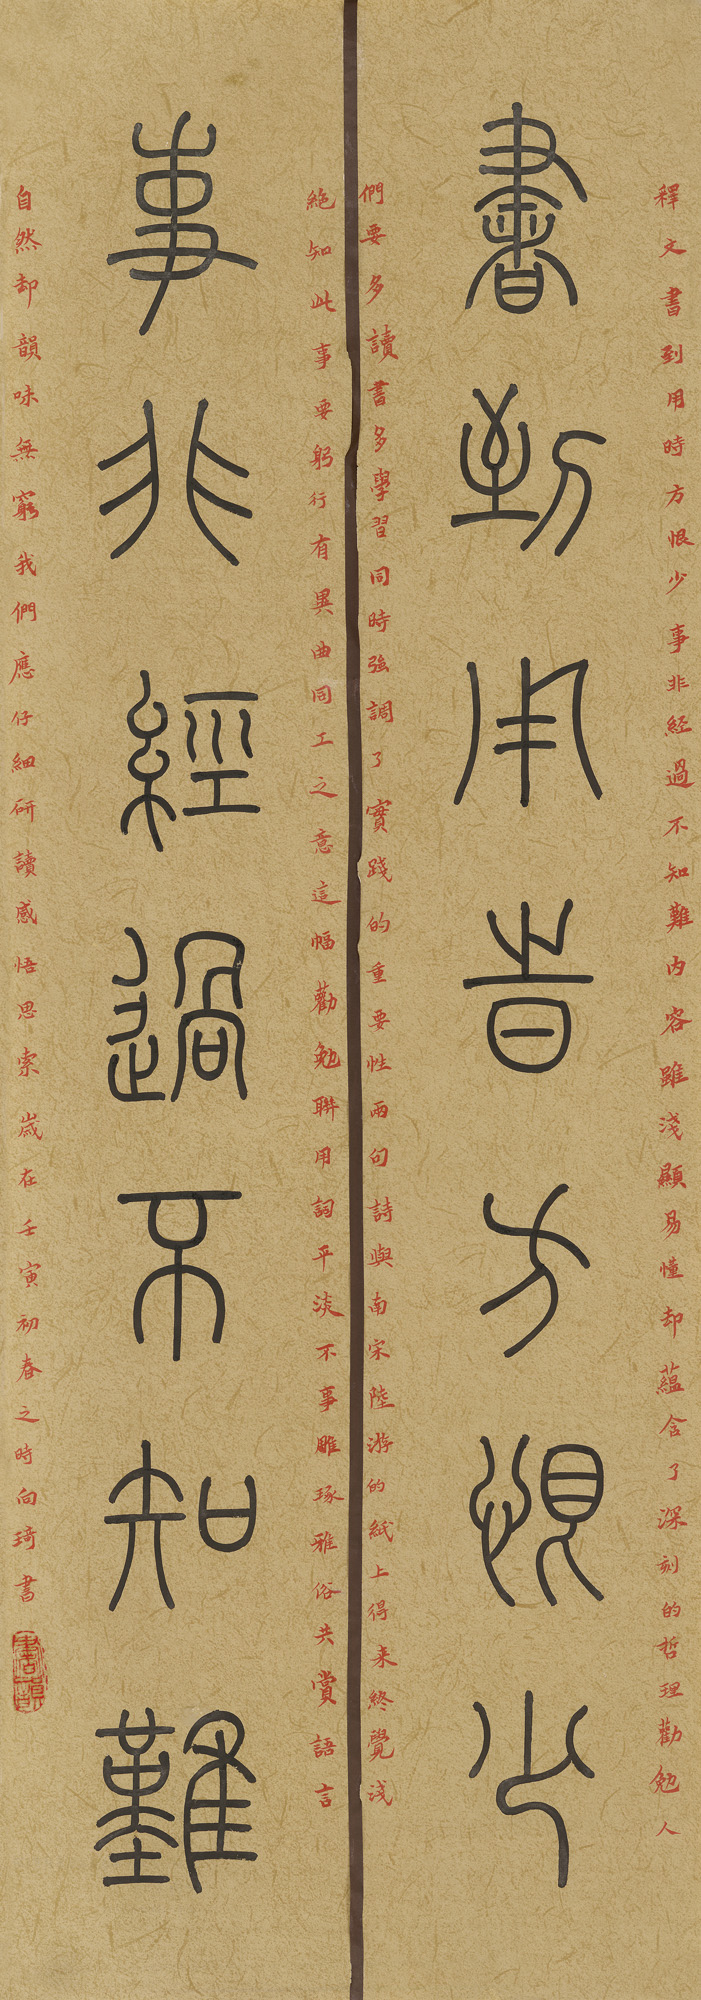 釋文書到用時方恨少事非經過不知難內容雖淺顯易懂却蘊含了深刻的哲理勸勉人
書到用時方恨少
們要多讀書多學習同時強調了實踐的重要性兩句詩與南宋陸游的紙上得来終覺淺
絶知此事要躬行有異曲同工之意這幅勸勉聯用詞平淡不事雕琢雅俗共賞語言
事非經過不知難
自然却韻味無窮我們應仔細研讀感悟思索歲在壬寅初春之時向琦書